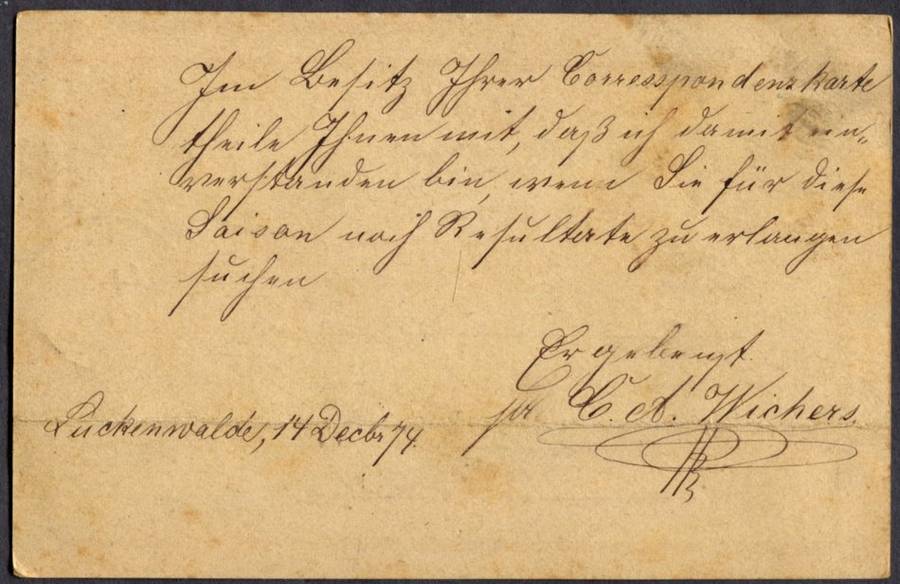 Im Besitz Ihrer Correspondenzkarte
theile Ihnen mit, daß ich damit ein„
verstanden bin, wenn Sie für diese
Saison noch Resultate zu erlangen
suchen
Ergebenst
C. A. Wichers.
Luckenwalde, 14 Decbr 74.